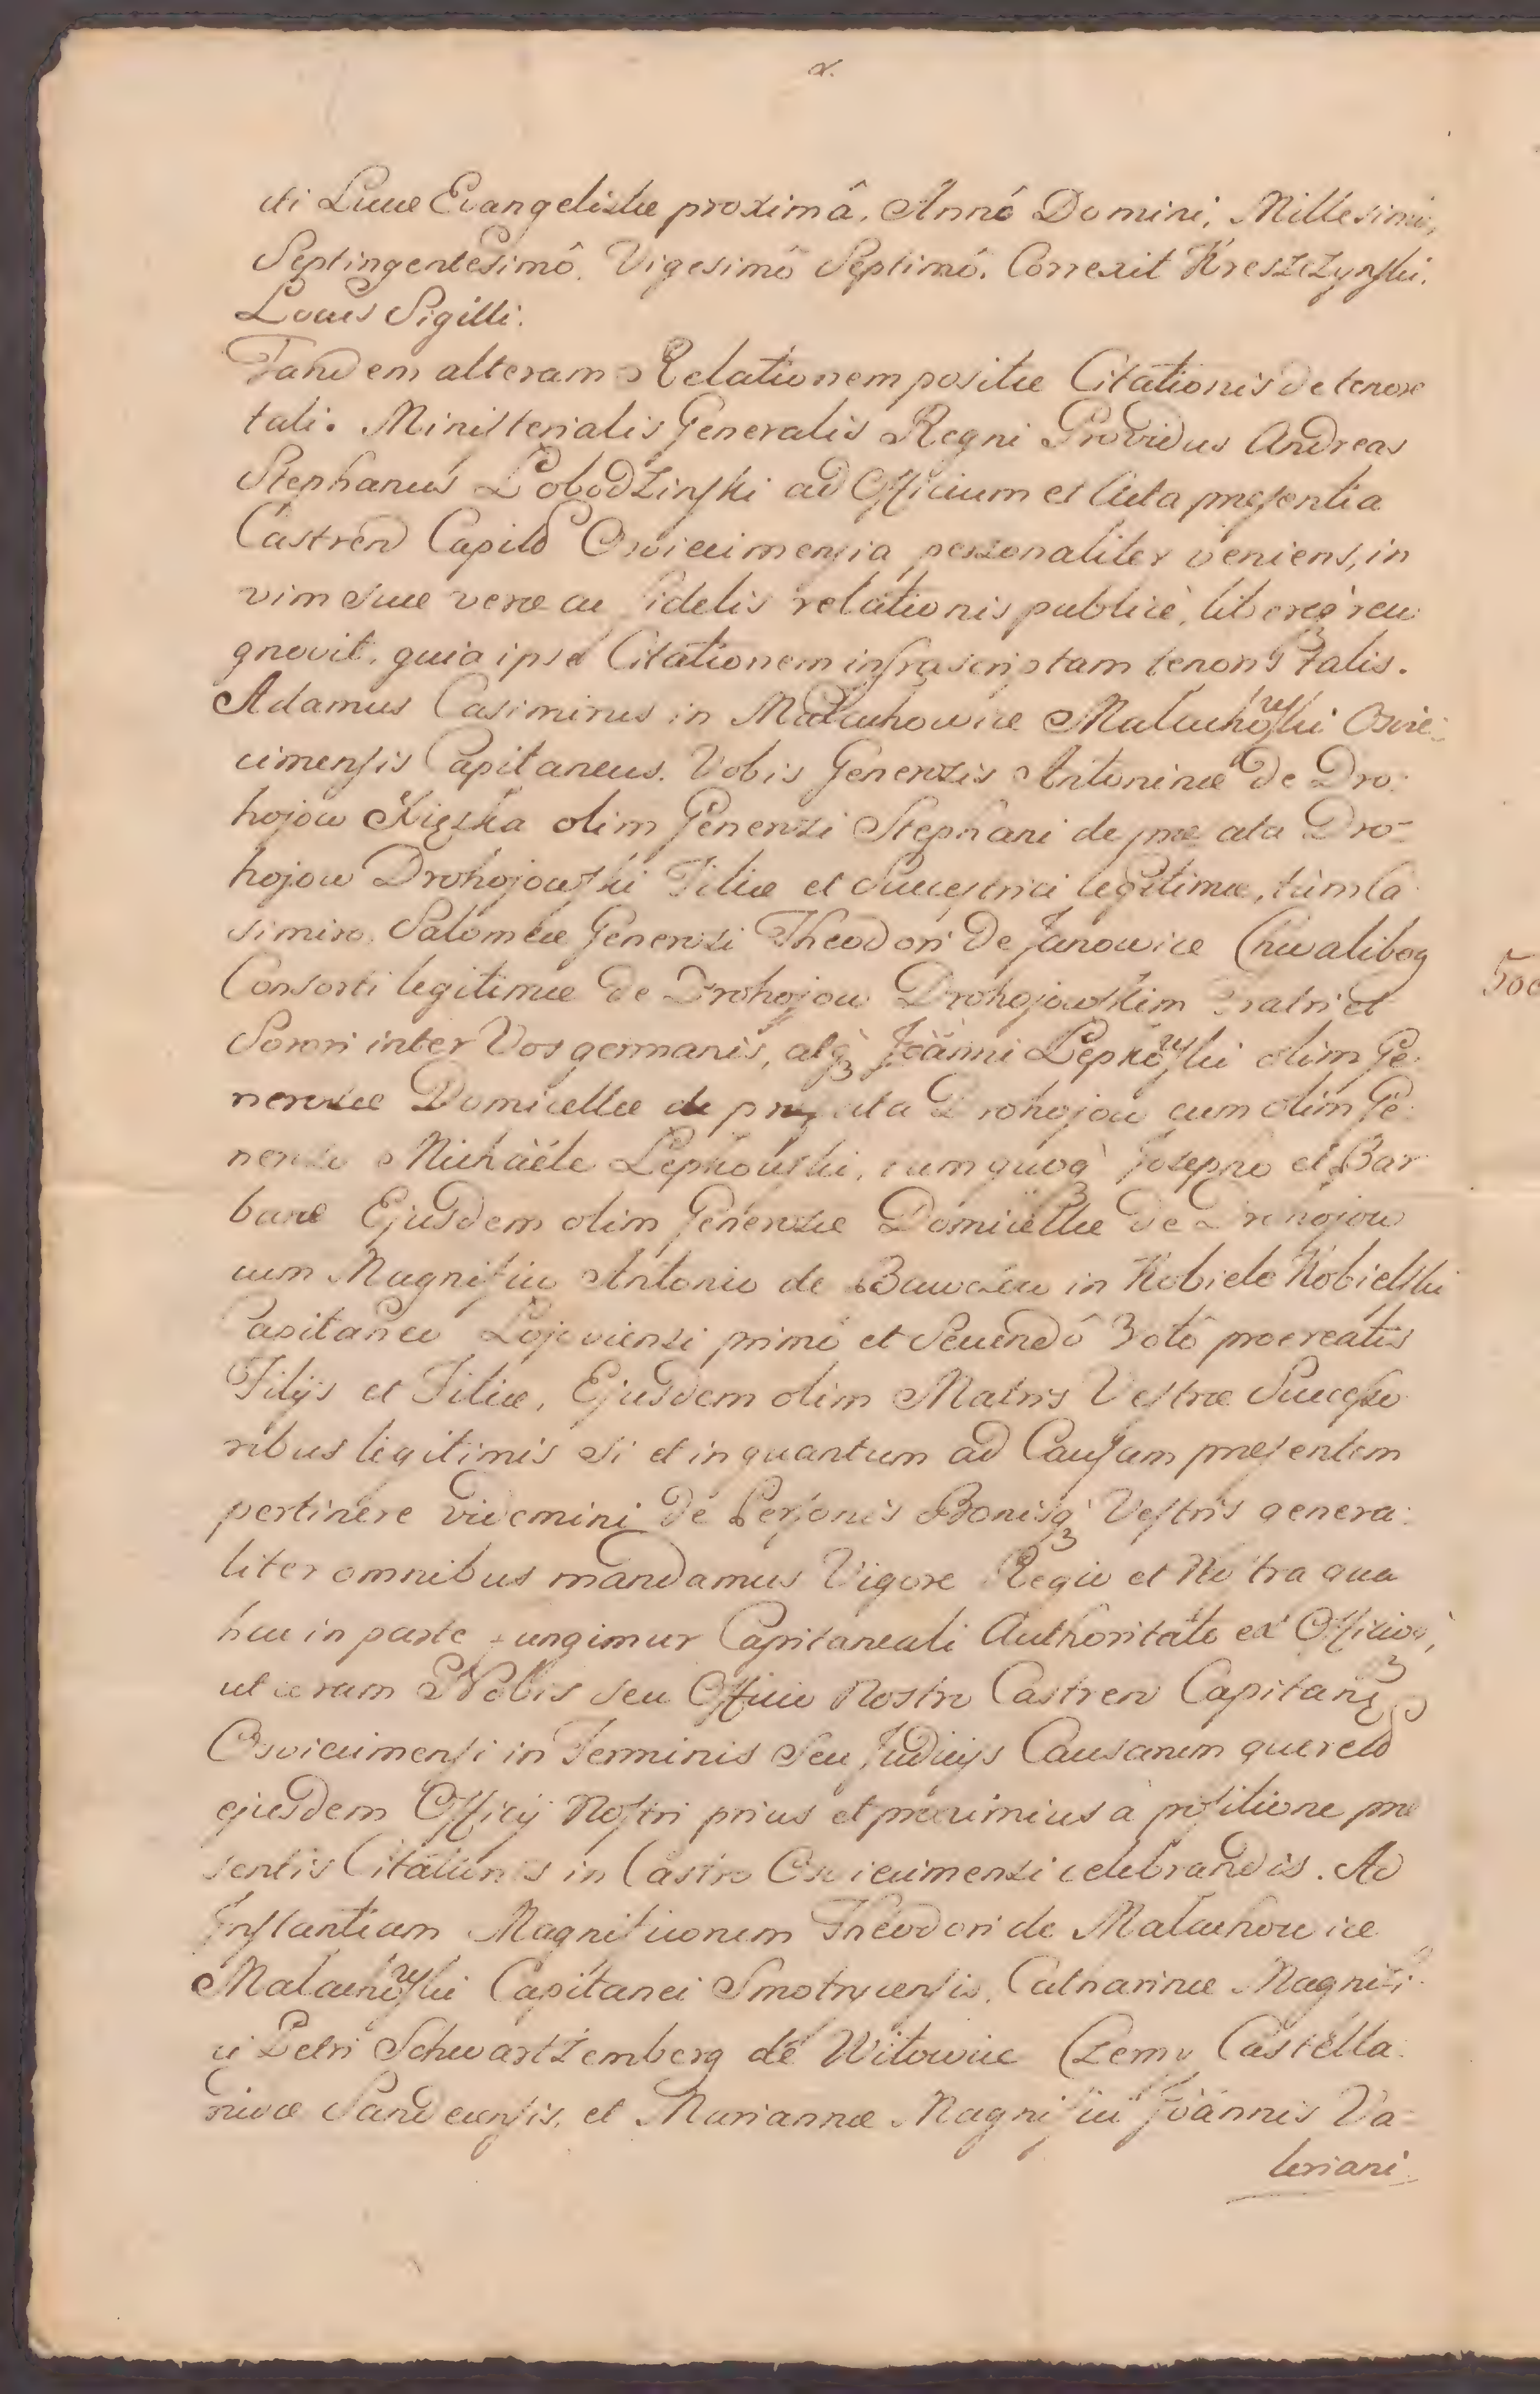 2.
cti Lucae Evangelistae proximâ, Annô Domini, Millesimô,
Septingentesimô, Vigesimô Septimô. Correxit Kreszczynski.
Locus Sigilli.
Tandem alteram Relationem positae Citationis de tenore
tali. Ministerialis Generalis Regni Providus Andreas
Stephanus Łobodzinski ad Officium et Acta praesentia
Castren Capitd Osviecimensia personaliter veniens, in
vim suae verae ac fidelis relationis publicè, libereqꝫ reco
gnovit, quia ipse Citationem infrascriptam tenoris talis.
Adamus Casimirus in Małachowice Małachowski Osvie-
cimensis Capitaneus. Vobis Generosis Antoninae de Dro-
hojow olim Generosi Stephani de prae ata Dro-
hojow Drohojowski Filiae et Successrici legitimae, tùm Ca
simiro, Salomeae Generosi Theodori de Janowice Chwalibog
Consorti legitimae de Drohojow Drohojowskim Fratri et
Sorori inter Vos germanis, atqꝫ Joänni Łepkowski olim Ge-
nerosae Domicellae de praefata Drohojow cum olim Ge-
neroso Michaële Łepkowski, tum quoqꝫ Josepho et Bar
barae Ejusdem olim Generosae Domicellae de Drohojow
cum Magnifico Antonio de in Kobiele Kobielski
Capitaneo primô et Secundô Votô procreatis
Filijs et Filiae, Ejusdem olim Matris Vestrae Successo
ribus legitimis si et inquantum ad Causam praesentem
pertinere videmini de Personis Bonisqꝫ Vestris genera-
liter omnibus mandamus Vigore Regia et Nostra qua
hac in parte fungimur Capitaneali Authoritate ex Officioqꝫ,
ut coram Nobis seu Officio Nostro Castren Capitan
Osviecimensi in Terminis seu Judicijs Causarum quereld
ejusdem Officij Nostri prius et proximius à positione prae
sentis Citationis in Castro Osviecimensi celebrandis. Ad
Instantiam Magnificorum Theodori de Małachowice
Małachowski Capitanei Smotrycensis, Catharinae Magnifi-
ci Petri Schwartzemberg de Witowice Czerny Castella-
nivae Sandecensis, et Mariannae Magnifici Joännis Va-
leriani
500